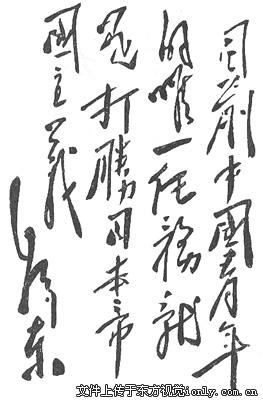 目前中國青年
的唯一任務就
是打勝日本帝
國主義
毛澤东
文件上传于东方视觉ionly.com.cn